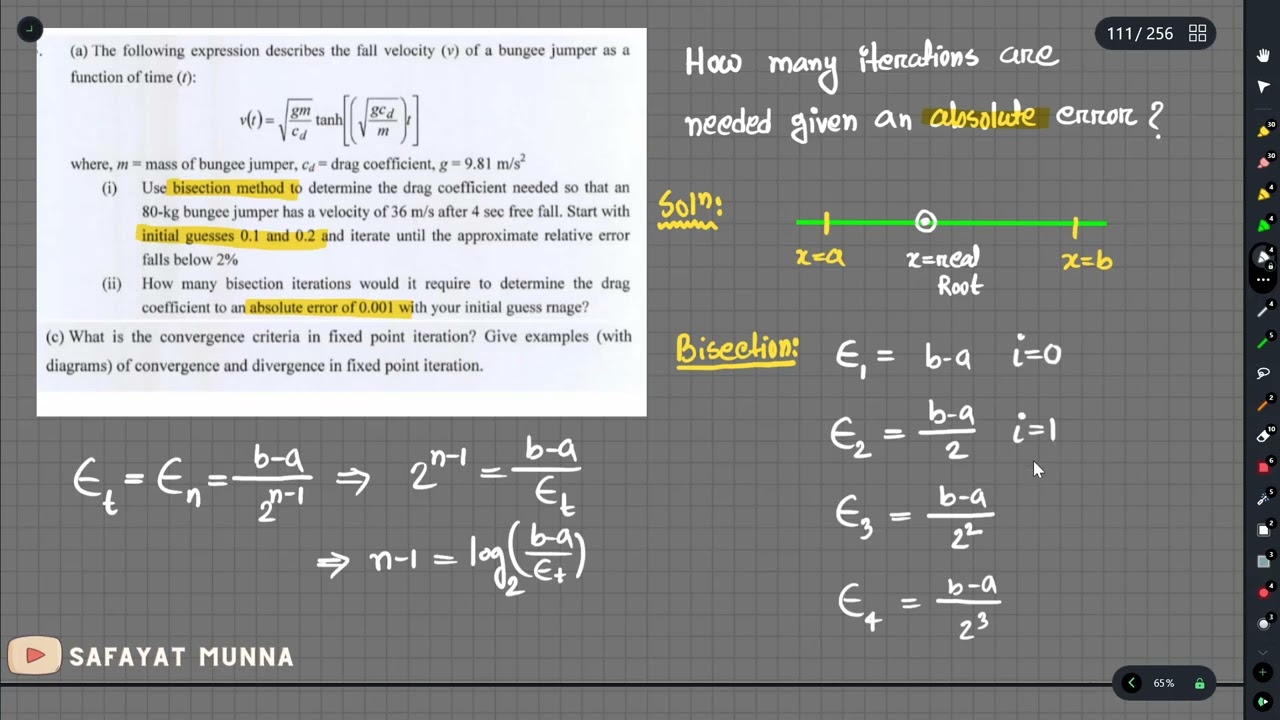 (a) The following expression describes the fall velocity (v) of a bungee jumper as a
function of time (t):
v(t) = √(gm/c_d) tanh[(√(gc_d/m))t]
where, m = mass of bungee jumper, c_d = drag coefficient, g = 9.81 m/s²
(i) Use bisection method to determine the drag coefficient needed so that an
80-kg bungee jumper has a velocity of 36 m/s after 4 sec free fall. Start with
initial guesses 0.1 and 0.2 and iterate until the approximate relative error
falls below 2%
(ii) How many bisection iterations would it require to determine the drag
coefficient to an absolute error of 0.001 with your initial guess rnage?
(c) What is the convergence criteria in fixed point iteration? Give examples (with
diagrams) of convergence and divergence in fixed point iteration.
ϵ_t = ϵ_n = (b-a)/2^(n-1) ⇒ 2^(n-1) = (b-a)/ϵ_t
⇒ n-1 = log₂((b-a)/ϵ_t)
SAFAYAT MUNNA
111 / 256
How many iterations are
needed given an absolute error?
Solⁿ:
x=a x=real x=b
Root
Bisection: ϵ₁ = b-a i=0
ϵ₂ = (b-a)/2 i=1
ϵ₃ = (b-a)/2²
ϵ₄ = (b-a)/2³
65%